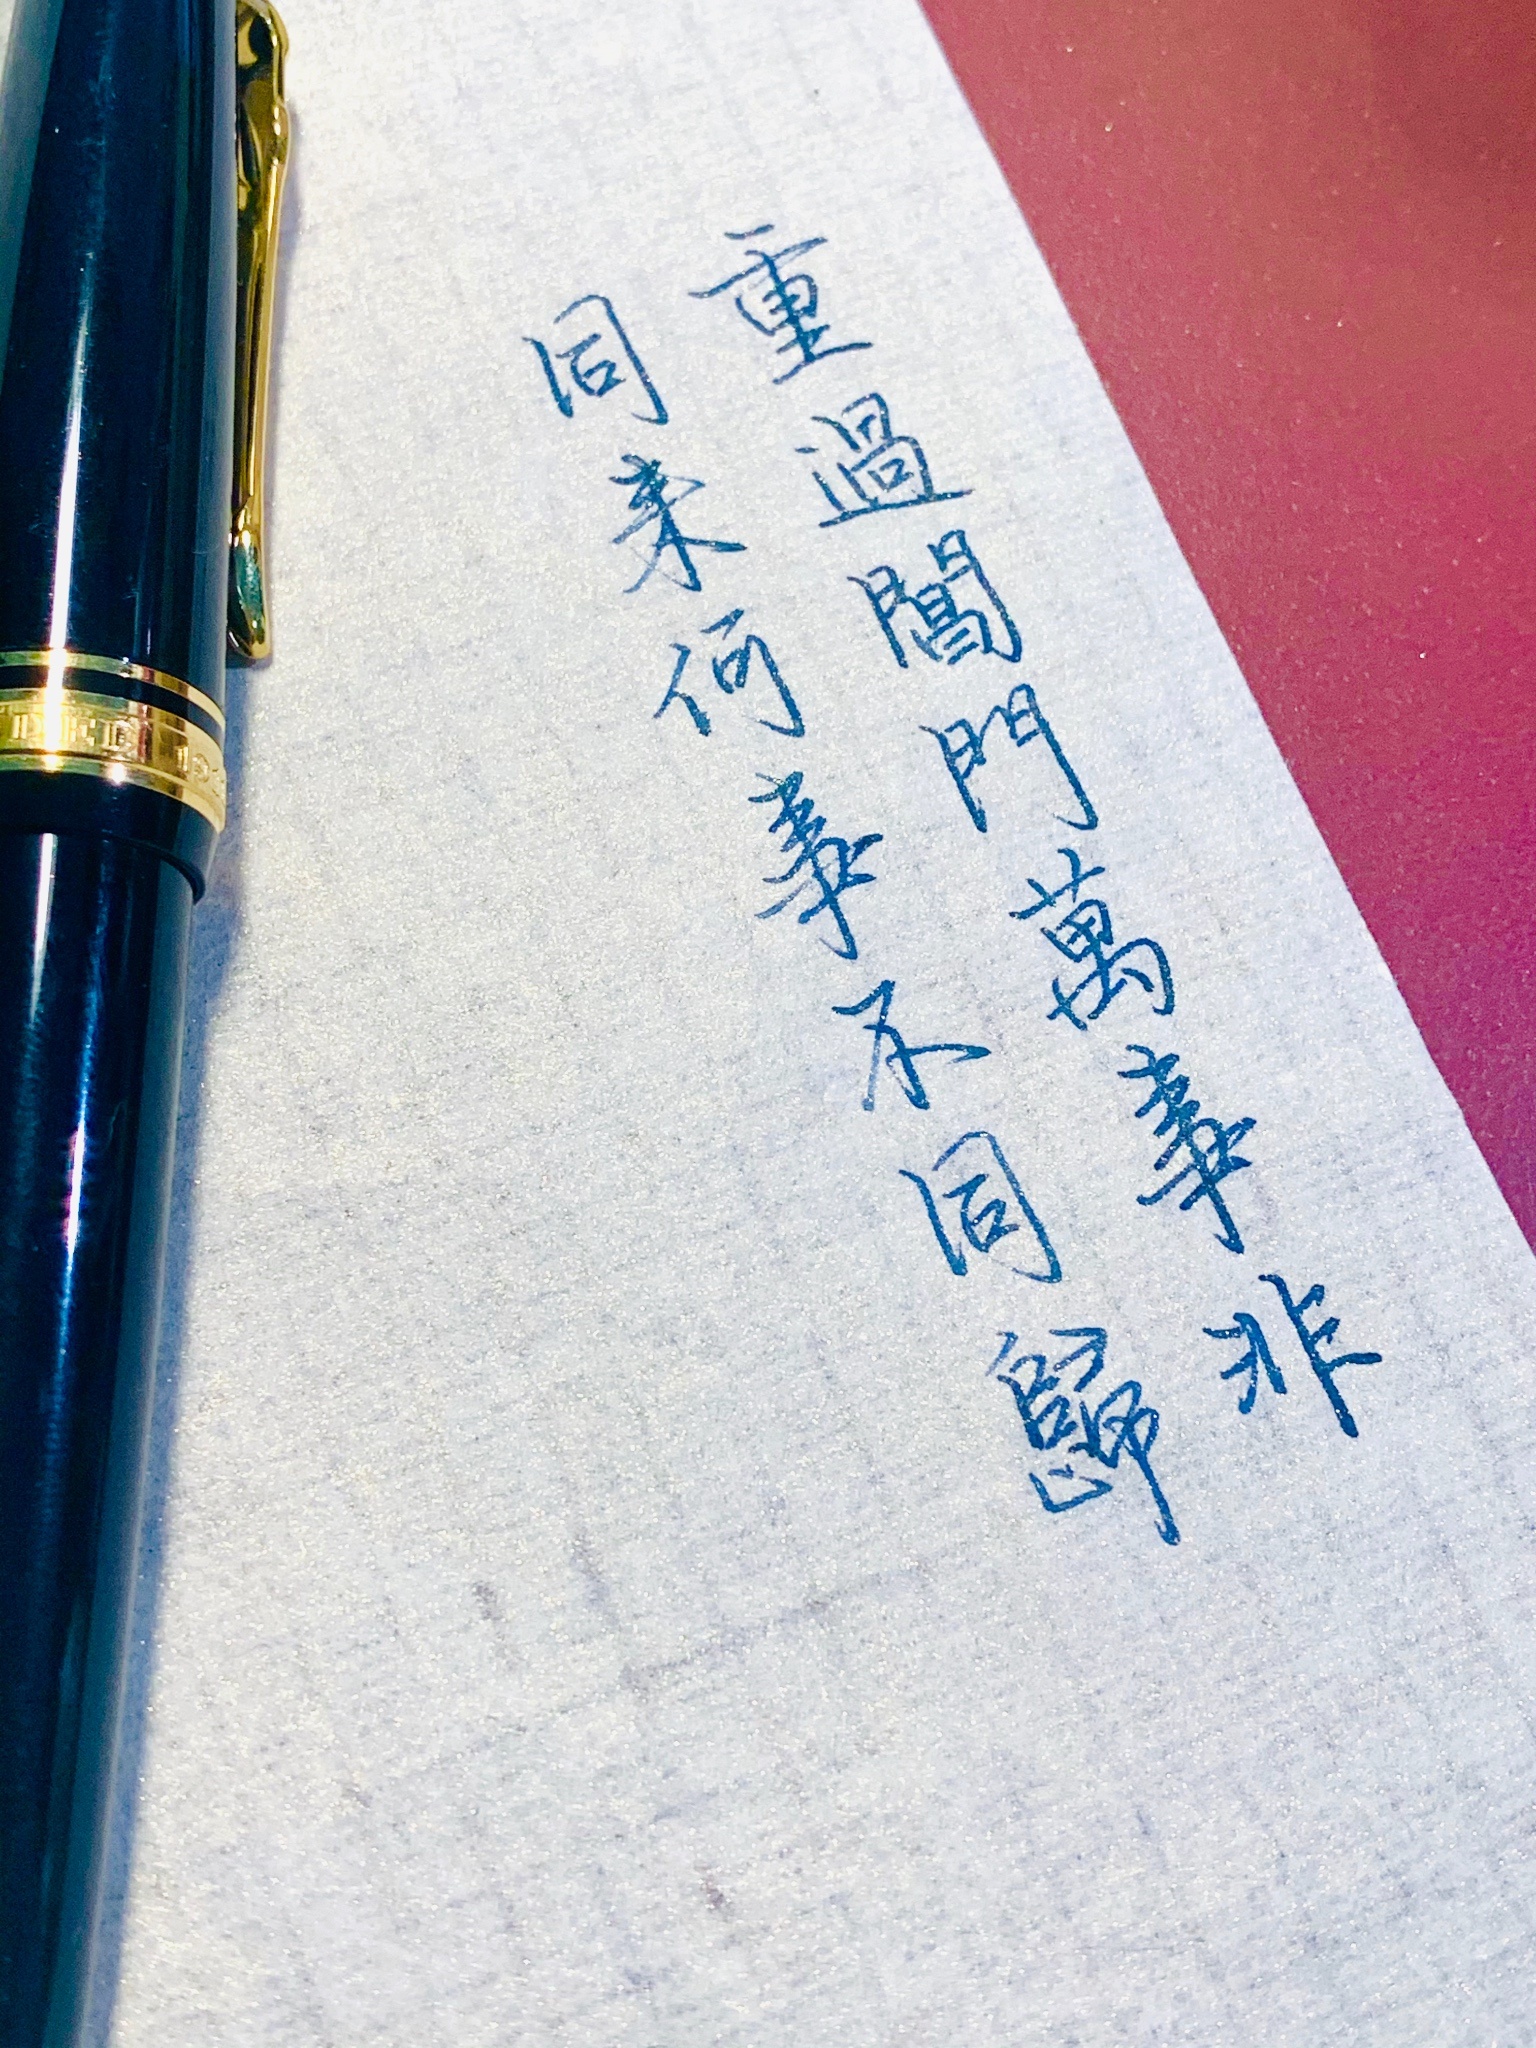 重過閶門萬事非
同来何事不同歸